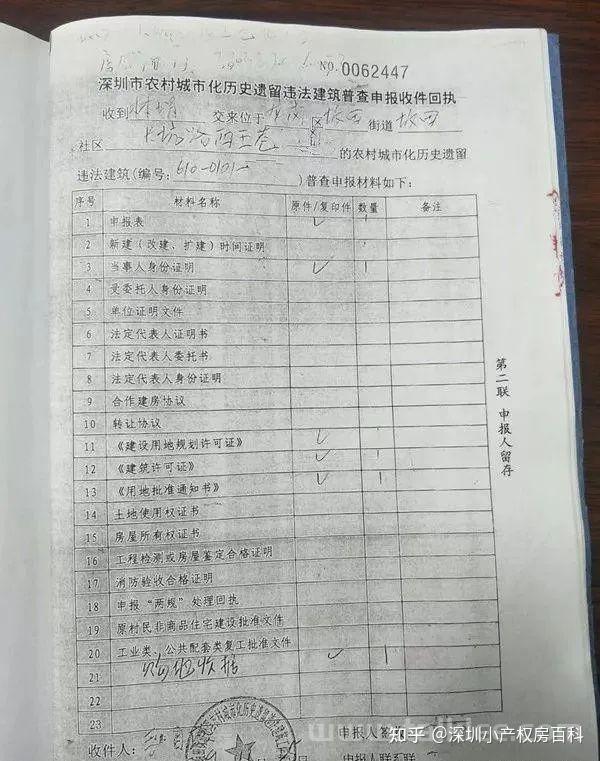 NO.0062447
深圳市农村城市化历史遗留违法建筑普查申报收件回执
收到 交来位于 区 坂田 街道 坂田
社区 的农村城市化历史遗留
违法建筑(编号: 610-0101 )普查申报材料如下:
序号 材料名称 原件/复印件 数量 备注
1 申报表 ✓ 1
2 新建(改建、扩建)时间证明
3 当事人身份证明 ✓ 1
4 受委托人身份证明
5 单位证明文件
6 法定代表人证明书
7 法定代表人委托书
8 法定代表人身份证明
9 合作建房协议
10 转让协议
11 《建设用地规划许可证》 ✓ 1
12 《建筑许可证》 ✓ 1
13 《用地批准通知书》 ✓ 1
14 土地使用权证书
15 房屋所有权证书
16 工程检测或房屋鉴定合格证明
17 消防验收合格证明
18 申报“两规”处理回执
19 原村民非商品住宅建设批准文件
20 工业类、公共配套类复工批准文件
21 收据 ✓ 1
22
23
收件人: 申报人签
申报人联系
第二联 申报人留存
知乎 @深圳小产权房百科